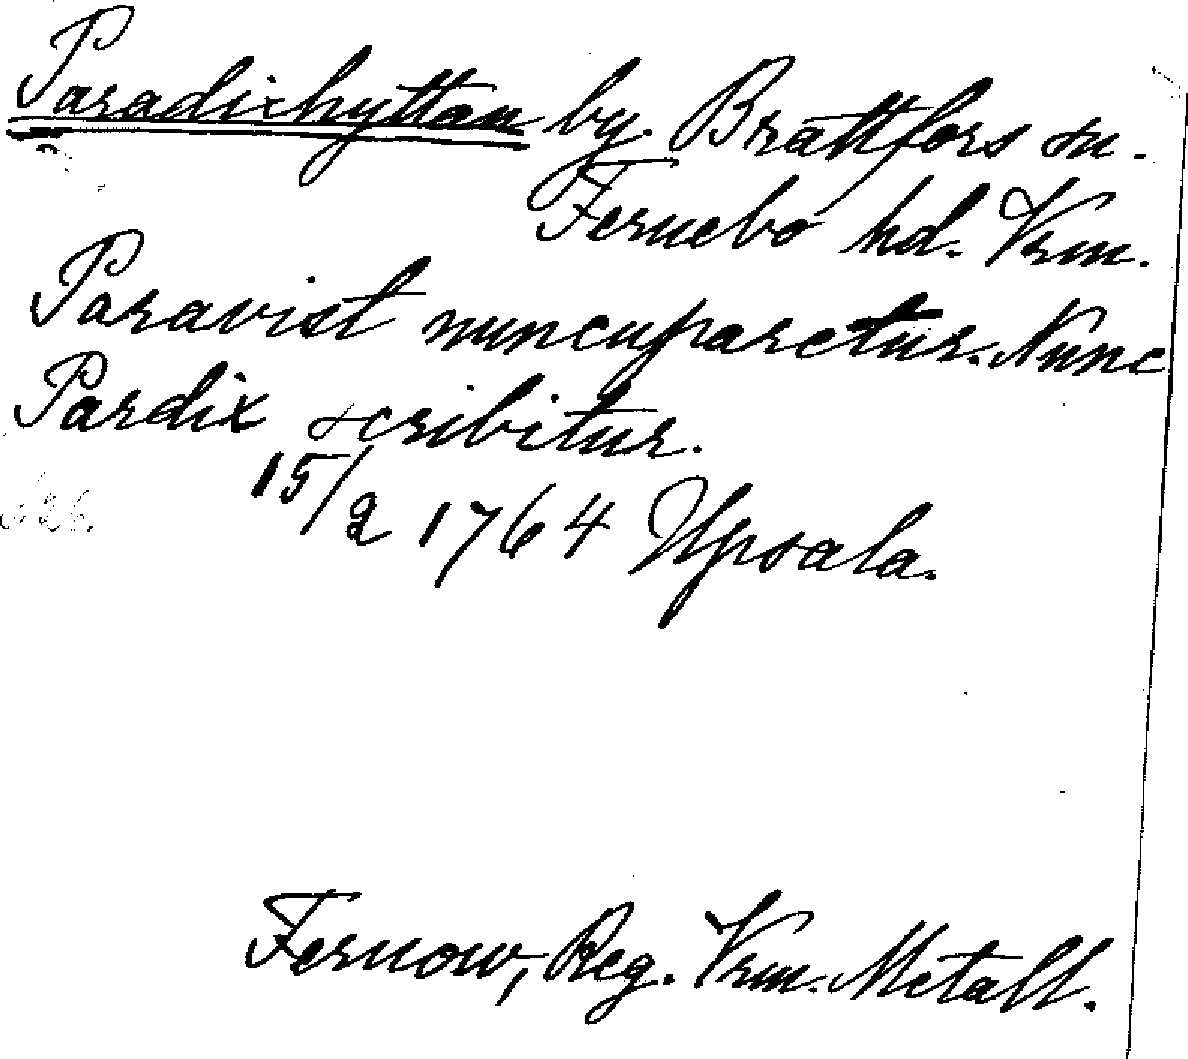 Paradixhyttan by. Brattfors sn.
Fernebo hd. Vrm.
Paravist nuncuparetur. Nunc
Pardix scribitur.
15/2 1764 Upsala.
Fernow, Reg. Vrm. Metall.